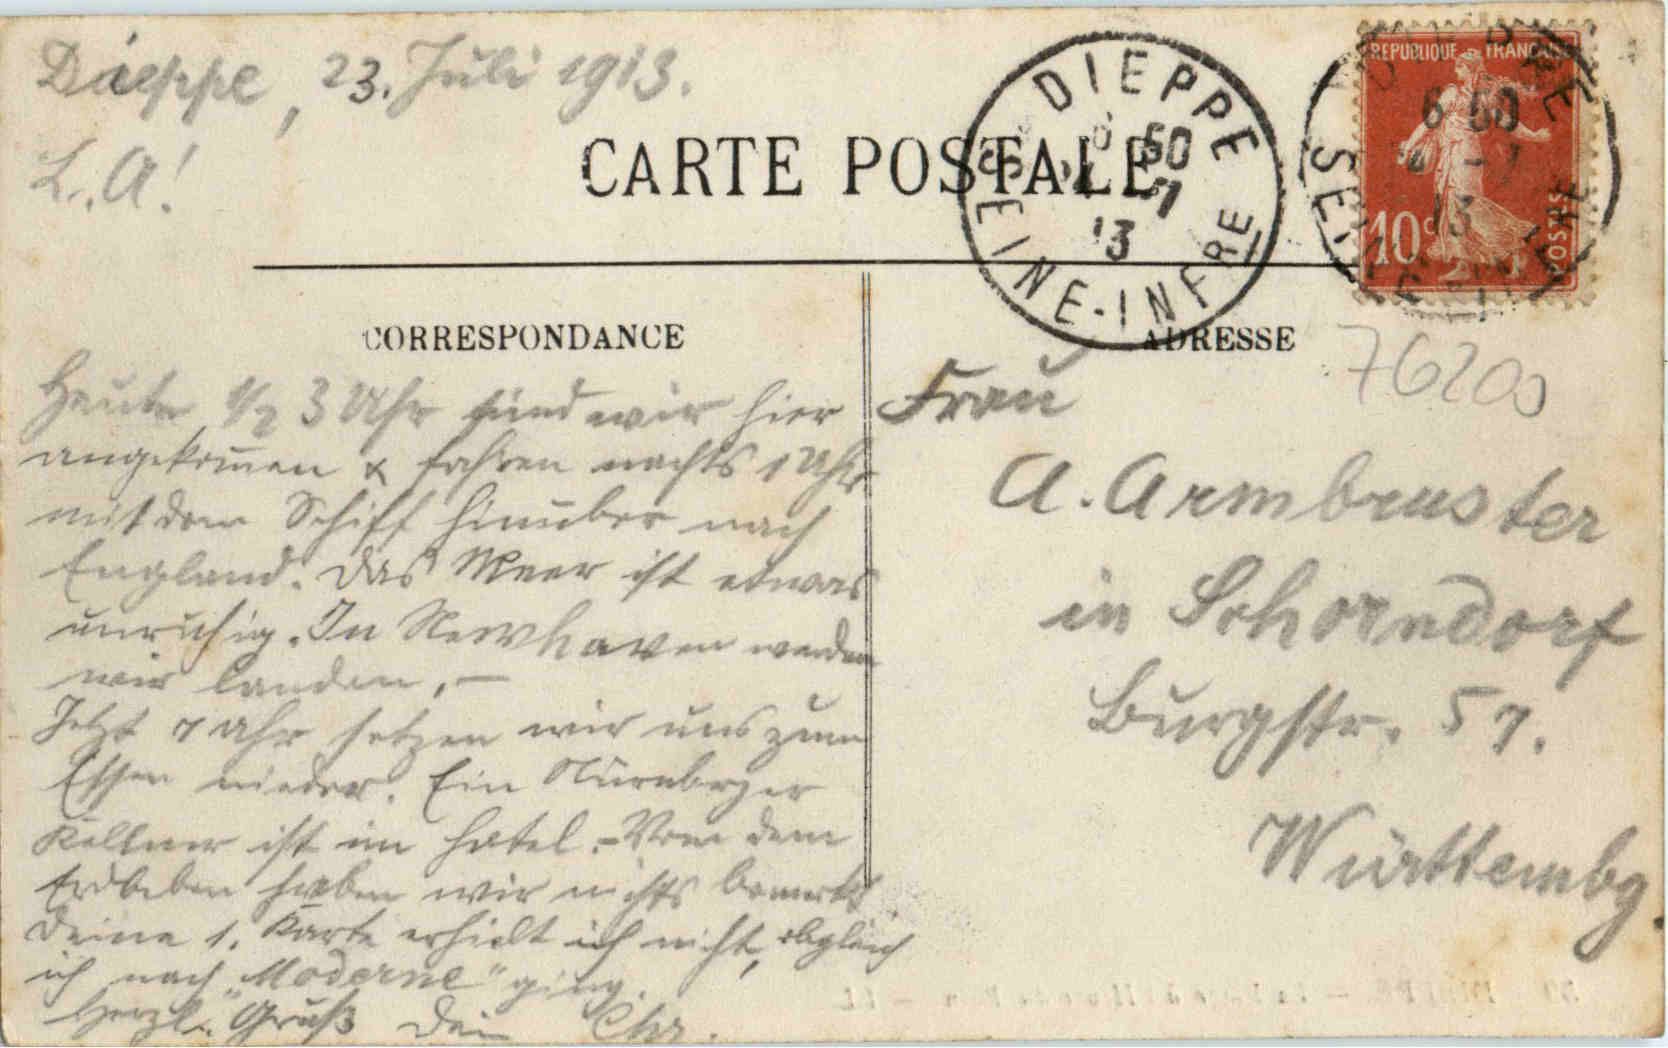 Dieppe, 23. Juli 1913.
L. A!
CARTE POSTALE
DIEPPE
6 50
7
13
SEINE-INFRE
REPUBLIQUE FRANÇAISE
6 50
13
10c
POSTES
CORRESPONDANCE
ADRESSE
76200
Heute 1/2 3 Uhr sind wir hier
angekom̅en & fahren nachts 1 Uhr
mit dem Schiff hinüber nach
England. Das Meer ist etwas
unruhig. In Newhaven werden
wir landen. –
Jetzt 7 Uhr setzen wir uns zum
Essen nieder. Ein Nürnberger
Kellner ist im Hotel. – Von dem
Erdbeben haben wir nichts bemerkt.
Deine 1. Karte erhielt ich nicht, obgleich
ich nach „Moderne" ging.
Herzl. Gruß Dein Chr.
Frau
A. Armbruster
in Schorndorf
Burgstr. 57.
Württembg.